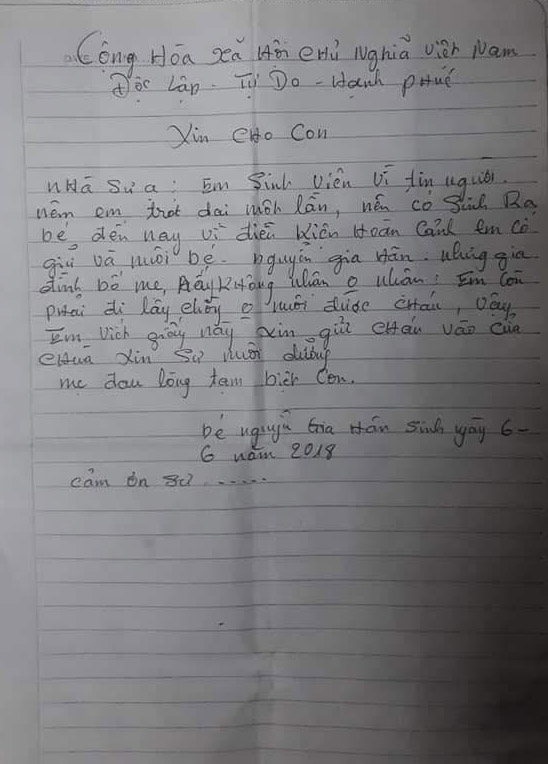 Cộng Hòa xã Hôi chủ Nghiã việt Nam
Độc Lập - Tự Do - Hạnh phúc
Xin cHo Con
nHà Sư a: Em Sinh viên Vì tin người.
nêm em trót dai môt lần, nên có Sinh Ra
bé, đến nay vì điều kiên Hoàn Cảnh em cố
giữ và nuôi bé. nguyễn gia Hân. nhưng gia
đình bố mẹ, Ấy không nhân o nhân: Em còn
pHải đi lấy chồng o nuôi được cHáu, vây
Em viêt giấy này xin gửi cHáu vào cửa
cHuà xin Sư nuôi dưỡng
mẹ đau lòng tạm biệt Con.
bé nguyễn Gia Hân Sinh ngày 6-
6 năm 2018
cảm ơn Sư ......